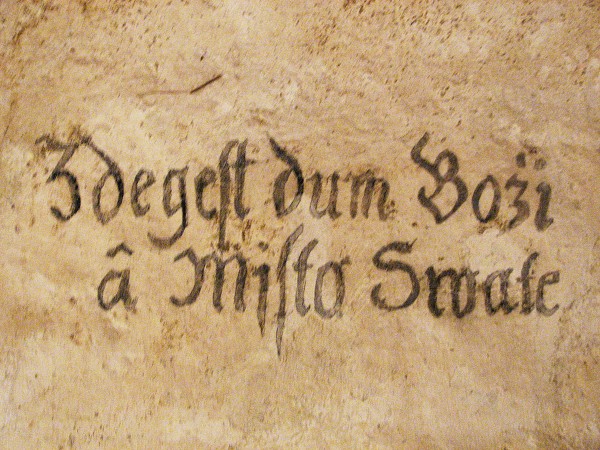 Zdegest dum Boži
â Misto Swate